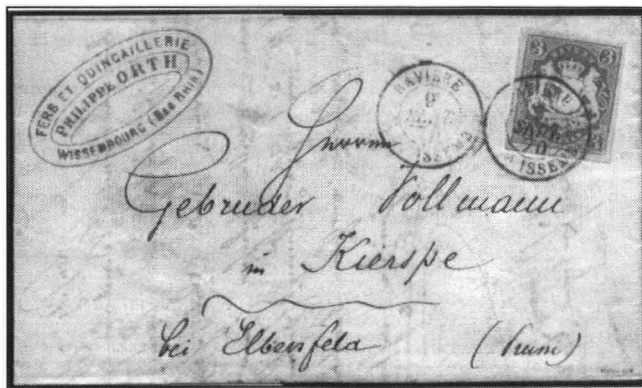 FERS ET QUINCAILLERIE
PHILIPPE ORTH
WISSEMBOURG (Bas Rhin)
BAVIÈRE
9
WISSEM
3 3
70
WISSEM
Herrn
Gebruder Vollmann
in Kierspe
bei Elbersfeld